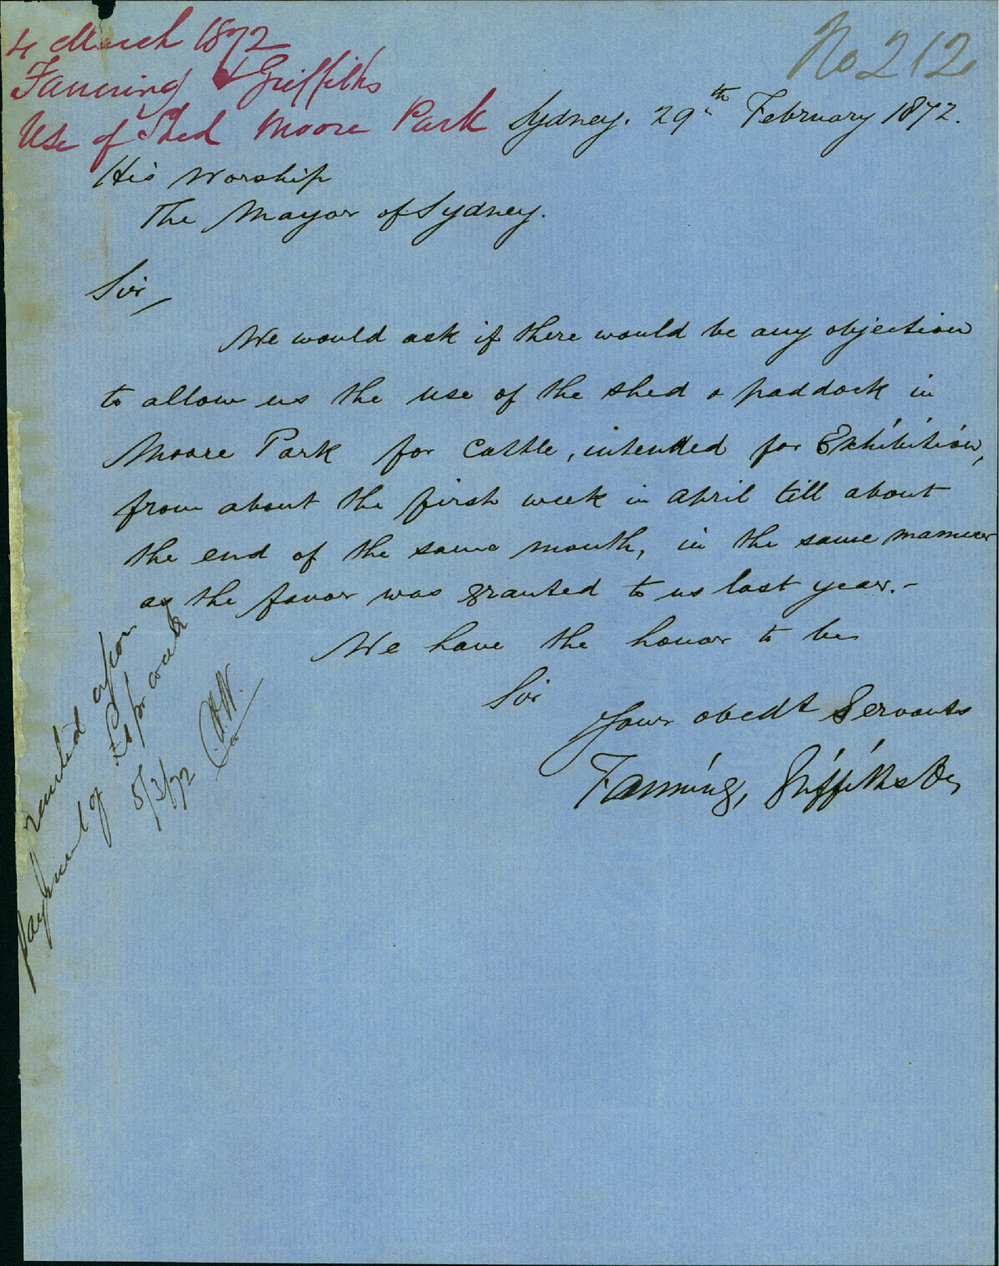 4 March 1872
Fanning & Griffiths
Use of Shed Moore Park
No 212
Sydney. 29th February 1872.
His Worship
The Mayor of Sydney.
Sir,
We would ask if there would be any objection
to allow us the use of the shed & paddock in
Moore Park for Cattle, intended for Exhibition,
from about the first week in April till about
the end of the same month, in the same manner
as the favor was granted to us last year.-
We have the honor to be
Sir
Your obedt Servants
Fanning, Griffiths & Co
Granted upon
payment of £1 pr week
5/3/72